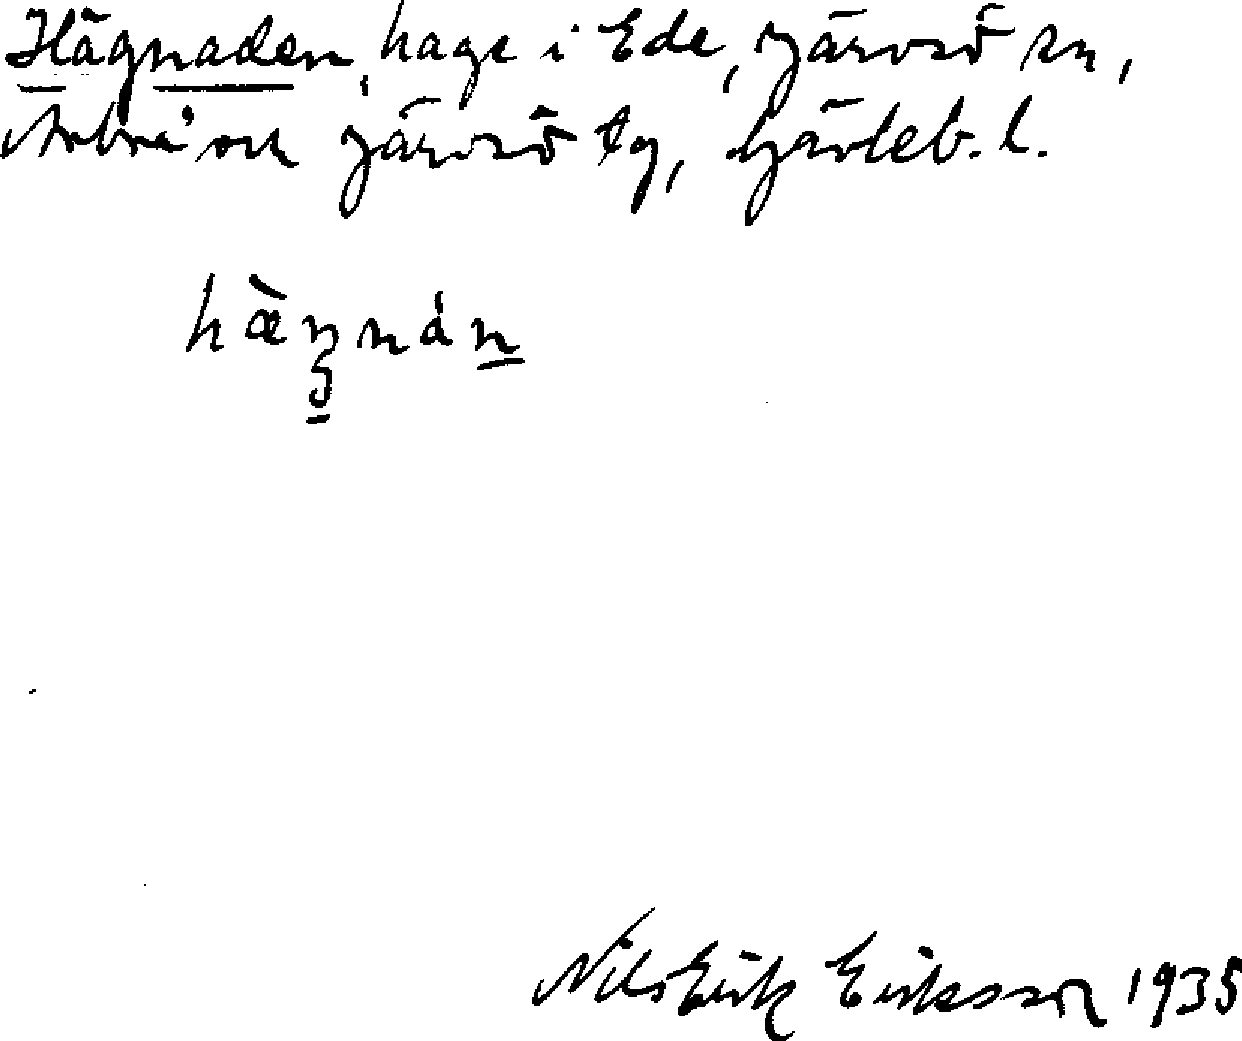 Hägnaden, hage i Ede, Järvsö sn,
Arbrå och Järvsö tg, Gävleb. l.
hæ̀ŋnȧn
Nils Erik Eriksson 1935